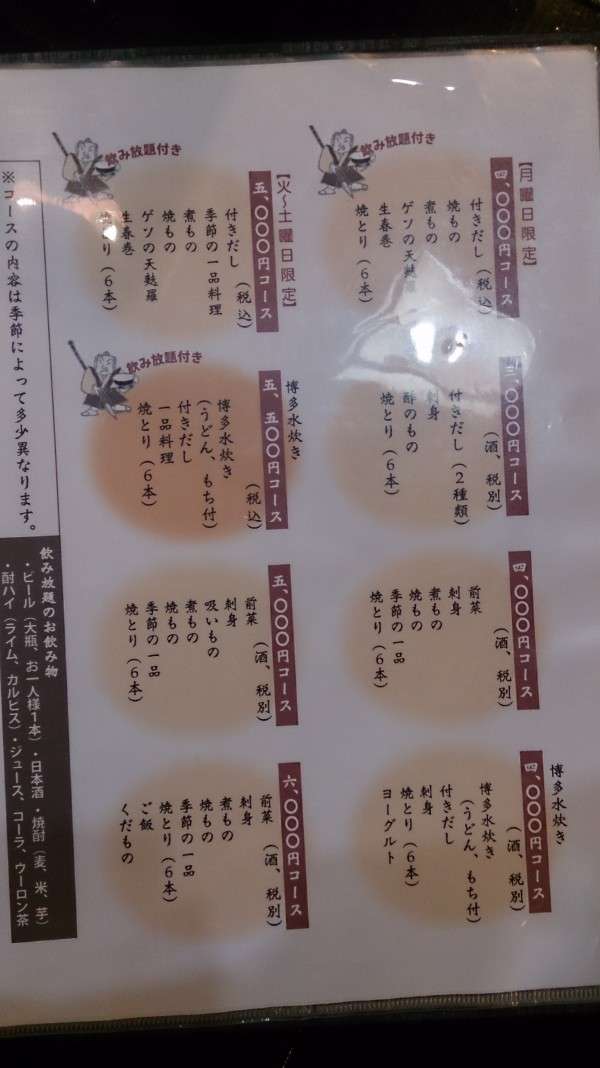 【月曜日限定】
四、〇〇〇円コース
(税込)
付きだし
焼もの
煮もの
ゲソの天麩羅
生春巻
焼とり(6本)
飲み放題付き
三、〇〇〇円コース
(酒、税別)
付きだし(2種類)
刺身
酢のもの
焼とり(6本)
四、〇〇〇円コース
(酒、税別)
前菜
刺身
煮もの
焼もの
季節の一品
焼とり(6本)
博多水炊き
四、〇〇〇円コース
(酒、税別)
博多水炊き
(うどん、もち付)
付きだし
刺身
焼とり(6本)
ヨーグルト
【火〜土曜日限定】
五、〇〇〇円コース
(税込)
付きだし
季節の一品料理
煮もの
焼もの
ゲソの天麩羅
生春巻
焼とり(6本)
飲み放題付き
博多水炊き
五、五〇〇円コース
(税込)
博多水炊き
(うどん、もち付)
付きだし
一品料理
焼とり(6本)
飲み放題付き
五、〇〇〇円コース
(酒、税別)
前菜
刺身
吸いもの
煮もの
焼もの
季節の一品
焼とり(6本)
六、〇〇〇円コース
(酒、税別)
前菜
刺身
煮もの
焼もの
季節の一品
焼とり(6本)
ご飯
くだもの
※コースの内容は季節によって多少異なります。
飲み放題のお飲み物
・ビール(大瓶、お一人様1本)・日本酒・焼酎(麦、米、芋)
・酎ハイ(ライム、カルピス)・ジュース、コーラ、ウーロン茶